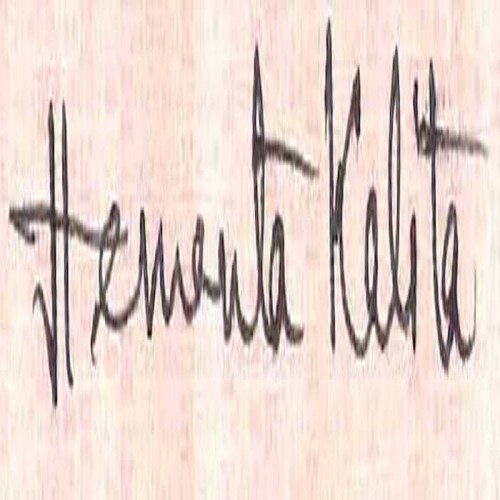 Hemonta Kalita